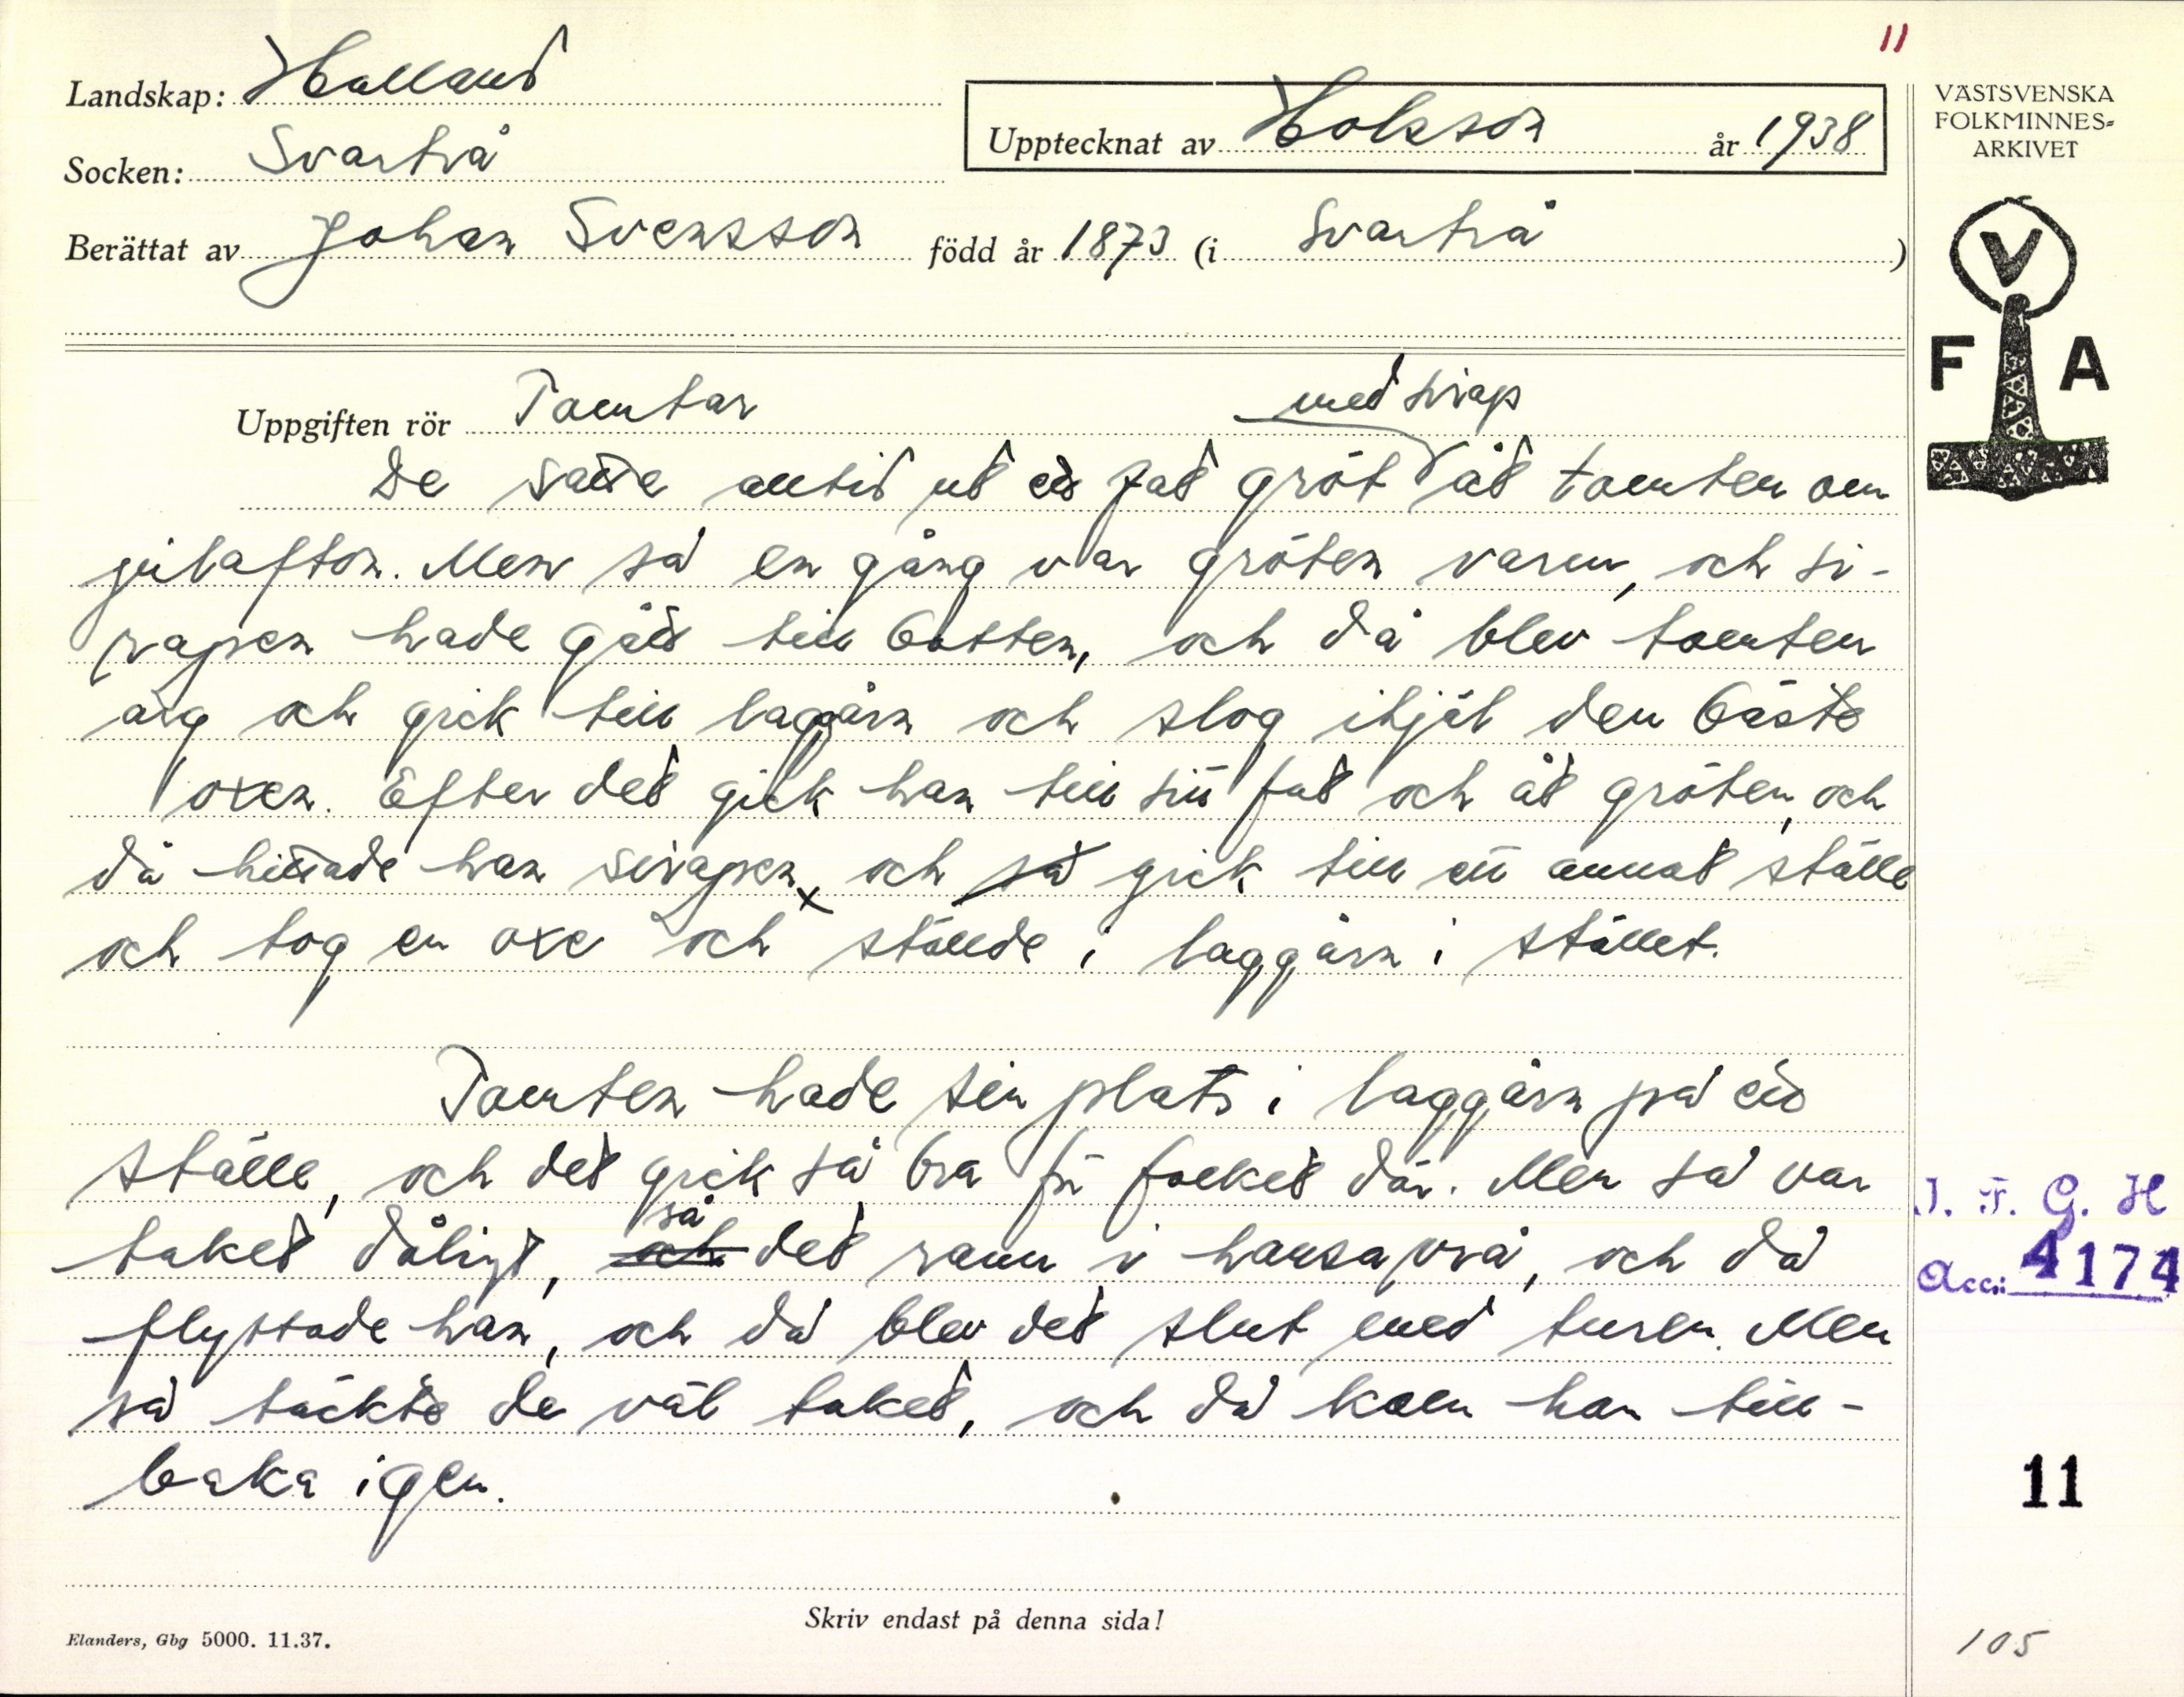 11
Landskap: Halland
Socken: Svartrå
Upptecknat av Holsson år 1938
Berättat av Johan Svensson född år 1873 (i Svartrå)
VÄSTSVENSKA
FOLKMINNES-
ARKIVET
V
F A
Uppgiften rör Tomtar
med sirap
De satte alltid ut ett fat gröt åt tomten om
julafton. Men så en gång var gröten varm, och si-
rapen hade gått till botten, och då blev tomten
arg och gick till laggårn och slog ihjäl den bäste
oxen. Efter det gick han till sitt fat och åt gröten, och
då hittade han sirapen x och så gick till ett annat ställe
och tog en oxe och ställde i laggårn i stället.
Tomten hade sin plats i laggårn på ett
ställe, och det gick så bra för folket där. Men så var
så
taket dåligt, och det rann i hansa vrå, och då
flyttade han, och då blev det slut med turen. Men
så täckte de väl taket, och då kom han till-
baka igen.
I. F. G. H
Acc: 4174
11
Skriv endast på denna sida!
Elanders, Gbg 5000. 11.37.
105